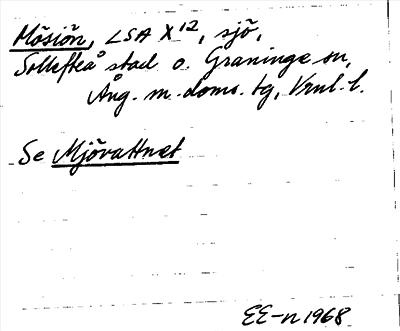 Mösjön, LSA X 12, sjö,
Sollefteå stad o. Graninge sn,
Ång. m. doms. tg, Vnnl. l.
Se Mjövattnet
EE-n 1968